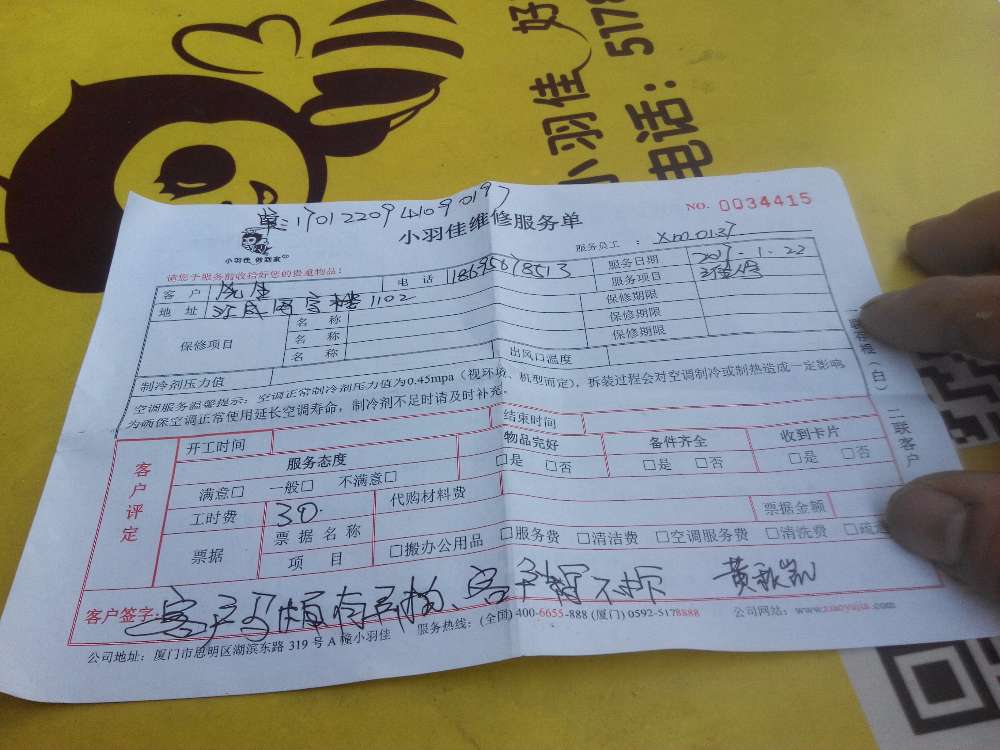 小羽佳 好
电话：5178
单：1701220941090197
NO. 0034415
小羽佳维修服务单
小羽佳 做到家
服务员工：Xm0137
请您于服务前收拾好您的贵重物品！
客 户
电 话 18695678513
服务日期 2017.1.22
地 址 1102
服务项目
保修项目
名 称
保修期限
名 称
保修期限
名 称
保修期限
制冷剂压力值
出风口温度
空调服务温馨提示：空调正常制冷剂压力值为0.45mpa（视环境、机型而定），拆装过程会对空调制冷或制热造成一定影响
为确保空调正常使用延长空调寿命，制冷剂不足时请及时补充。
客户评定
开工时间
结束时间
服务态度
物品完好
备件齐全
收到卡片
满意□ 一般□ 不满意□
□是 □否
□是 □否
□是 □否
工时费 30.
代购材料费
票据金额
票据
票 据 名 称
项 目
□搬办公用品 □服务费 □清洁费 □空调服务费 □清洗费
（白） 二联客户
客户签字：
公司地址：厦门市思明区湖滨东路 319 号 A 幢小羽佳 服务热线：(全国) 400-6655-888 (厦门) 0592-5178888 公司网站：www.xiaoyujia.com